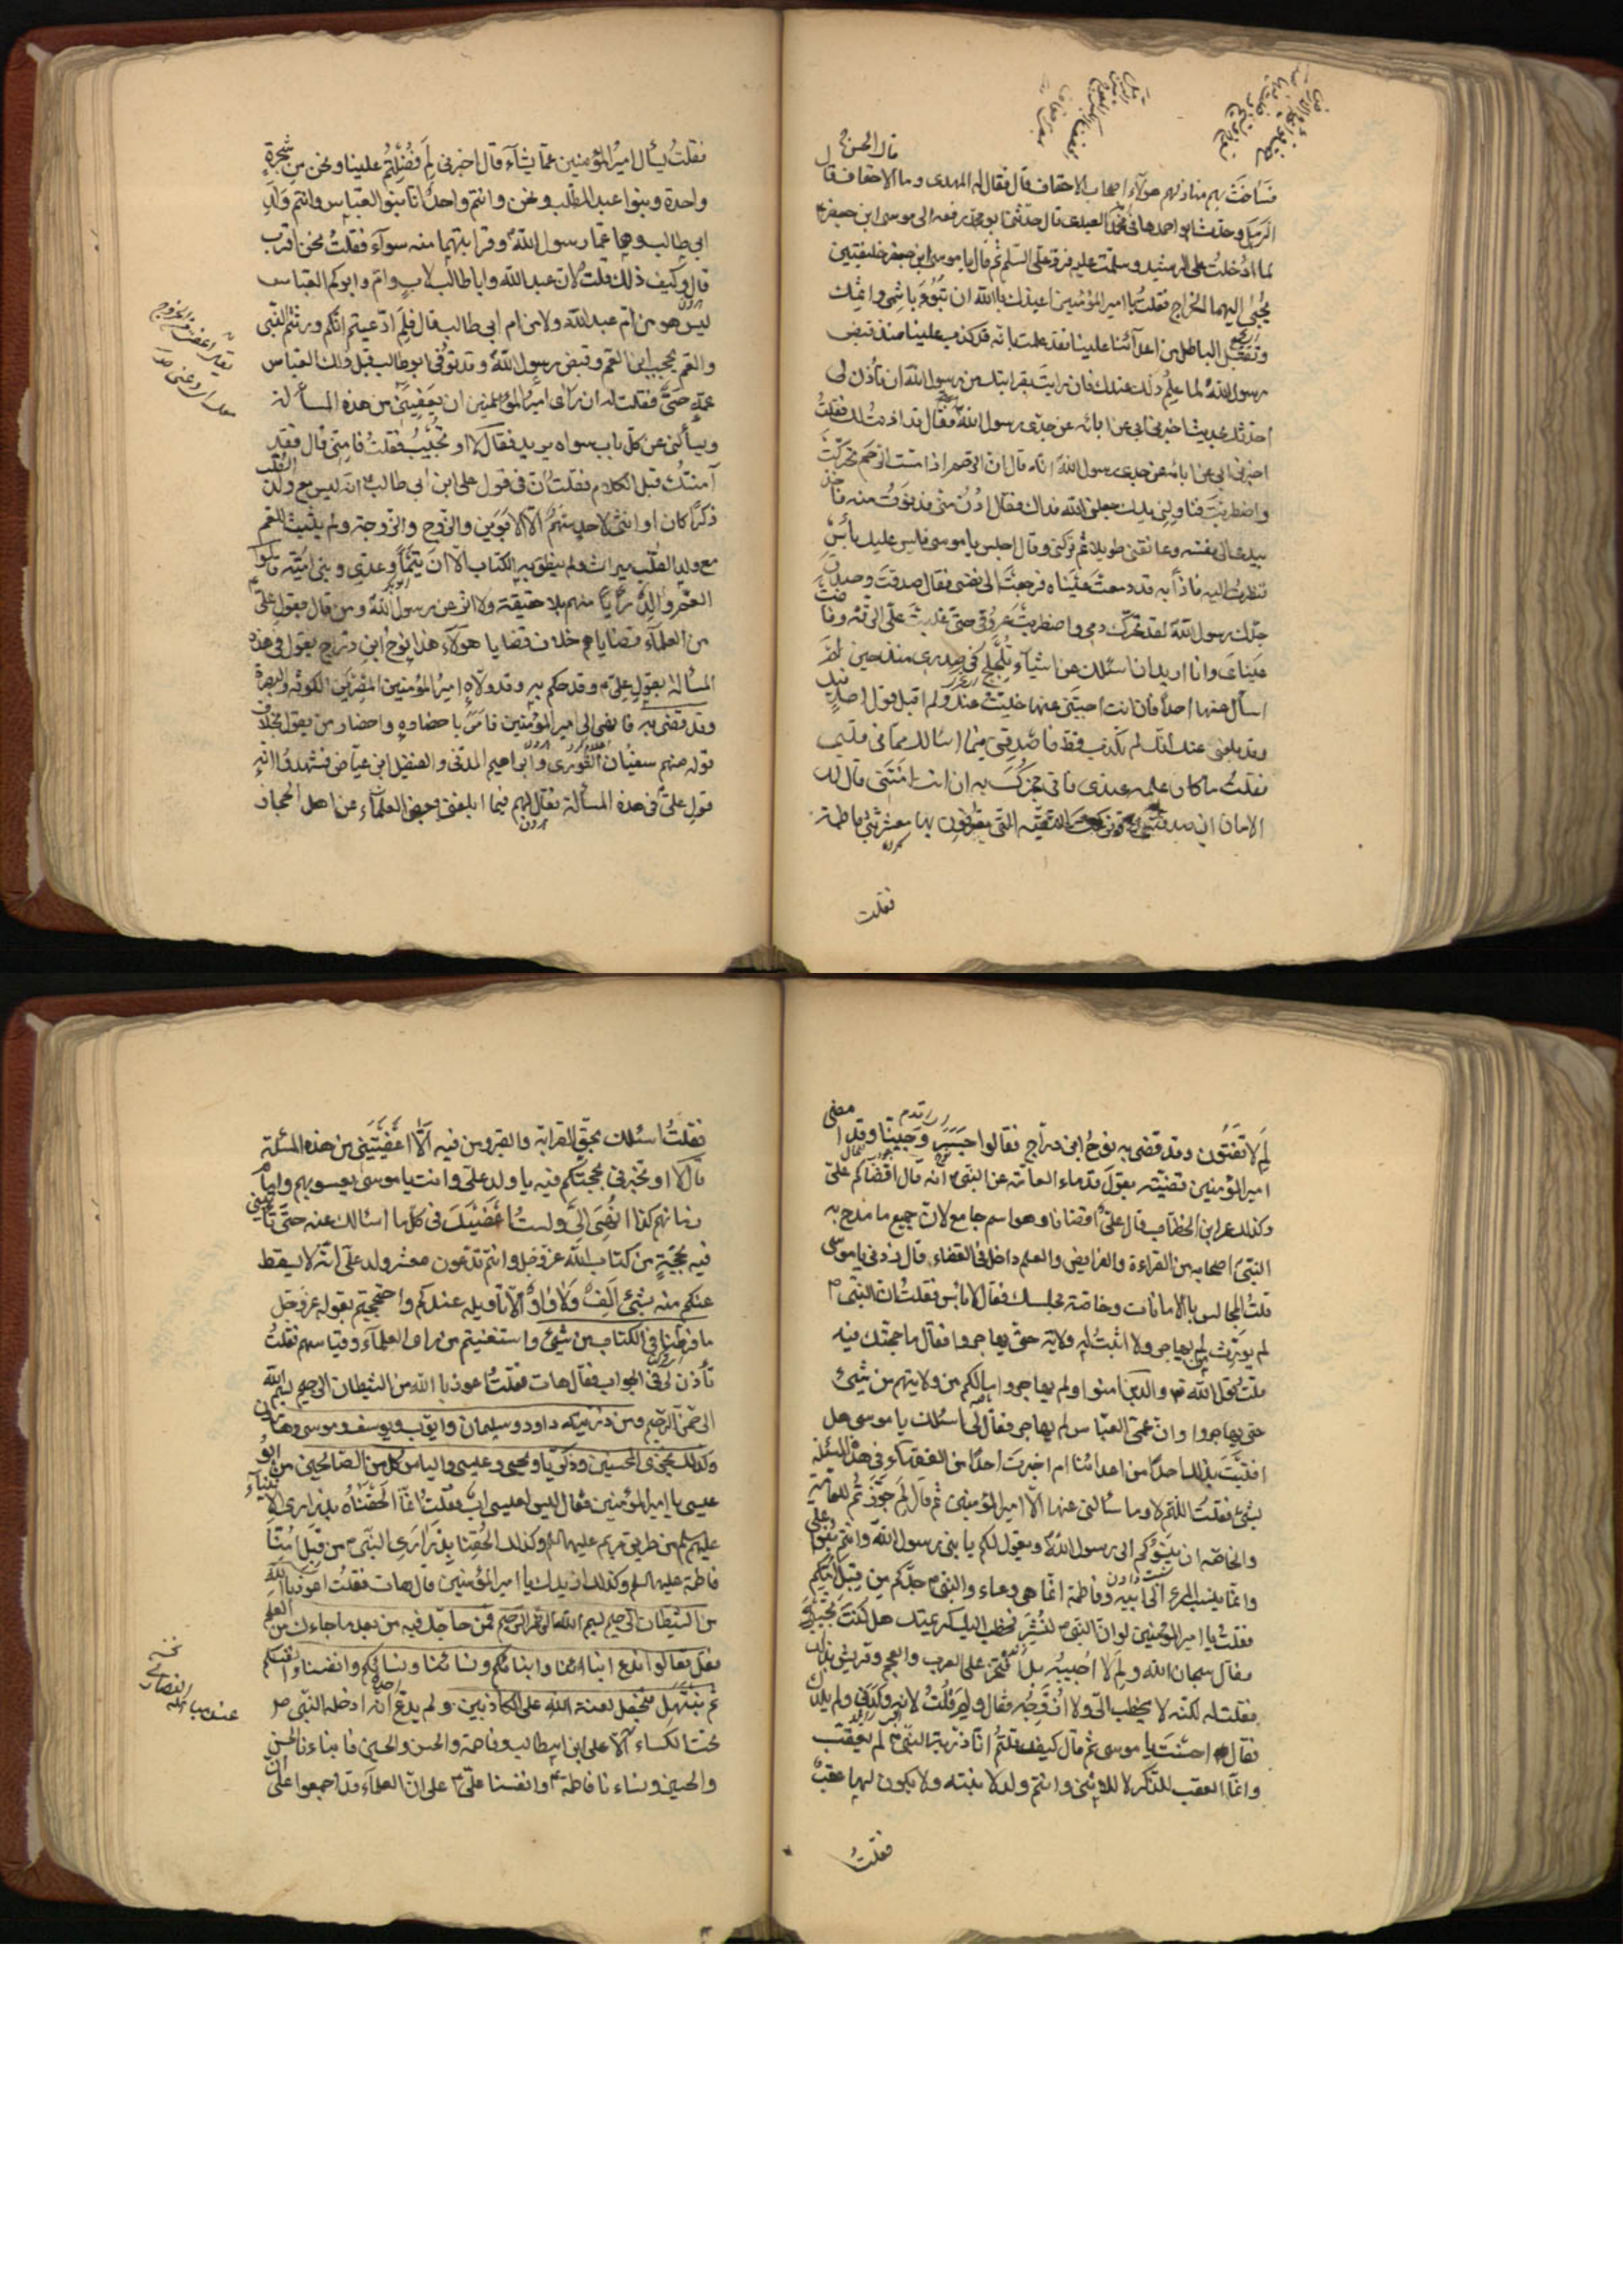 قال الحسن
فساخت بهم منازلهم هؤلاء اصحاب الاحقاف قال فقال له المهدى وما الاحقاف قال
الرمل وحدثنا ابو احمد هانى محمد العبدى قال حدثنى ابو محمد رفعه الى موسى ابن جعفر
لما ادخلت على الرشيد وسلمت عليه فرد على السلم ثم قال يا موسى ابن جعفر خليفتين
يجبى اليهما الخراج فقلت يا امير المؤمنين اعيذك بالله ان تبوء باثمى واثمك
وتقبل الباطل من اعدآئنا علينا فقد علمت بانه قد كذب علينا منذ قبض
رسول الله لما علم ذلك عندك فان رايت بقرابتك من رسول الله ان تأذن لى
احدثك بحديث اخبرنى ابى عن ابائه عن جدى رسول الله فقال قد اذنت لك فقلت
اخبرنى ابى عن ابائه عن جدى رسول الله انه قال ان الرحم اذا مست الرحم تحركت
واضطربت فناولنى يدك جعلنى الله فداك فقال ادن منى فدنوت منه فاخذ
بيدى الى نفسه وعانقنى طويلا ثم تركنى وقال اجلس يا موسى فليس عليك باس
فنظرت اليه فاذا به قد دمعت عيناه فرجعت الى نفسى فقال صدقت وصدق
جدك رسول الله لقد تحرك دمى واضطربت عروقى حتى غلبت على الرقة وفاضت
عيناى وانا اريد ان اسئلك عن اشيآء تلجلج فى صدرى منذ حين لم
اسأل عنها احدا فان انت اجبتنى عنها خليت عنك ولم اقبل قول احد فيك
وقد بلغنى عنك انك لم تكذب قط فاصدقنى فيما اسالك مما فى قلبى
فقلت ما كان علمه عندى فانى مخبرك به ان انت امنتنى قال لك
الامان ان صدقتنى وتركت التقية التى تعرفون بها معشر بنى فاطمة
فقلت
فقلت يسأل امير المؤمنين عما يشآء قال اخبرنى لم فضلتم علينا ونحن من شجرة
واحدة وبنوا عبد المطلب ونحن وانتم واحد انا بنوا العباس وانتم ولد
ابى طالب وهما عما رسول الله وقرابتهما منه سوآء فقلت نحن اقرب
قال وكيف ذلك قلت لان عبد الله وابا طالب لاب وام وابوكم العباس
ليس هو من ام عبد الله ولا من ام ابى طالب قال فلم ادعيتم انكم ورثتم النبى
والعم يحجب ابن العم وقبض رسول الله وقد توفى ابو طالب قبله وذلك العباس
عمه حى فقلت له ان رأى امير المؤمنين ان يعفينى من هذه المسألة
ويسألنى عن كل باب سواه يريد فقال لا او تجيب فقلت فامنى قال فقد
آمنتك قبل الكلام فقلت ان فى قول على ابن ابى طالب انه ليس مع ولد الصلب
ذكرا كان او انثى لاحد سهم الا الابوين والزوج والزوجة ولم يثبت للعم
مع ولد الصلب ميراث ولم ينطق به الكتاب الا ان تيما وعدى وبنى امية قالوا
العم والد رأيا منهم بلا حقيقة ولا اثر عن رسول الله ومن قال بقول على
من العلمآء قضاياهم خلاف قضايا هؤلآء هذا نوح ابن دراج يقول فى هذه
المسألة بقول على وقد حكم به وقد ولاه امير المؤمنين المصرين الكوفة والبصرة
وقد قضى به فانهى الى امير المؤمنين فامر باحضاره واحضار من يقول بخلاف
قوله منهم سفيان الثورى وابراهيم المدنى والفضيل ابن عياض فشهدوا انه
قول على فى هذه المسألة فقال لهم فيما ابلغنى بعض العلمآء من اهل الحجاز
لم لا تفتون وقد قضى به نوح ابن دراج فقالوا جسر وجبنا وقد امضى
امير المؤمنين قضيته بقول قدماء العامة عن النبى انه قال اقضاكم على
وكذلك عمر ابن الخطاب قال على اقضانا وهو اسم جامع لان جميع ما مدح به
النبى اصحابه من القراءة والفرايض والعلم داخل فى القضاء قال زدنى يا موسى
قلت المجالس بالامانات وخاصة مجلسك فقال لا باس فقلت ان النبى
لم يورث من لم يهاجر ولا اثبت له ولاية حتى يهاجروا فقال ما حجتك فيه
قلت قول الله والذين امنوا ولم يهاجروا ما لكم من ولايتهم من شئ
حتى يهاجروا وان عمى العباس لم يهاجر فقال لى اسئلك يا موسى هل
افتيت بذلك احدا من اعدائنا ام اخبرت احدا من الفقهاء فى هذه المسئلة
بشئ فقلت اللهم لا وما سألنى عنها الا امير المؤمنين ثم قال لم جوزتم للعامة
والخاصة ان ينسبوكم الى رسول الله ويقول لكم يا بنى رسول الله وانتم بنو على
وانما ينسب المرء الى ابيه وفاطمة انما هى وعاء والنبى جدكم من قبل امكم
فقلت يا امير المؤمنين لو ان النبى نشر فخطب اليك كريمتك هل كنت تجيبه
فقال سبحان الله ولم لا اجيبه بل افتخر على العرب والعجم وقريش بذلك
فقلت له لكنه لا يخطب الى ولا ازوجه فقال ولم قلت لانه ولدنى ولم يلدك
فقال احسنت يا موسى ثم قال كيف قلتم انا ذرية النبى لم يعقب
وانما العقب للذكر لا للانثى وانتم ولد لابنته ولا يكون لها عقب
فقلت
فقلت اسئلك بحق القرابة والقبر ومن فيه الا اعفيتنى من هذه المسئلة
قال لا او تخبرنى بحجتكم فيه يا ولد على وانت يا موسى يعسوبهم وامام
زمانهم كذا انهى الى ولست اعفيك فى كل ما اسالك عنه حتى تأتينى
فيه بحجة من كتاب الله عز وجل وانتم تدعون معشر ولد على انه لا يسقط
عنكم منه بشئ الف ولا واو الا تاويله عندكم واحتججتم بقوله عز وجل
ما فرطنا فى الكتاب من شئ واستغنيتم من رأى العلمآء وقياسهم فقلت
تأذن لى فى الجواب فقال هات فقلت اعوذ بالله من الشيطان الرجيم بسم الله
الرحمن الرحيم ومن ذريته داود وسليمان وايوب ويوسف وموسى وهارون
وكذلك نجزى المحسنين وزكريا ويحيى وعيسى والياس كل من الصالحين من ابو
عيسى يا امير المؤمنين فقال ليس لعيسى اب فقلت انما الحقناه بذرارى الانبيآء
عليهم السلم من طريق مريم عليها السلم وكذلك الحقنا بذرارى النبى من قبل امنا
فاطمة عليها السلم وكذلك ازيدك يا امير المؤمنين قال هات فقلت اعوذ بالله
من الشيطان الرجيم بسم الله الرحمن الرحيم فمن حاجك فيه من بعد ما جاءك من العلم
فقل تعالوا ندع ابنائنا وابنائكم ونسائنا ونسائكم وانفسنا وانفسكم
ثم نبتهل فنجعل لعنة الله على الكاذبين ولم يدع احد انه ادخله النبى
تحت الكساء الا على ابن ابيطالب وفاطمة والحسن والحسين فابناءنا الحسن
والحسين ونساءنا فاطمة وانفسنا على على ان العلمآء قد اجمعوا على ان
عند مباهلة النصارى